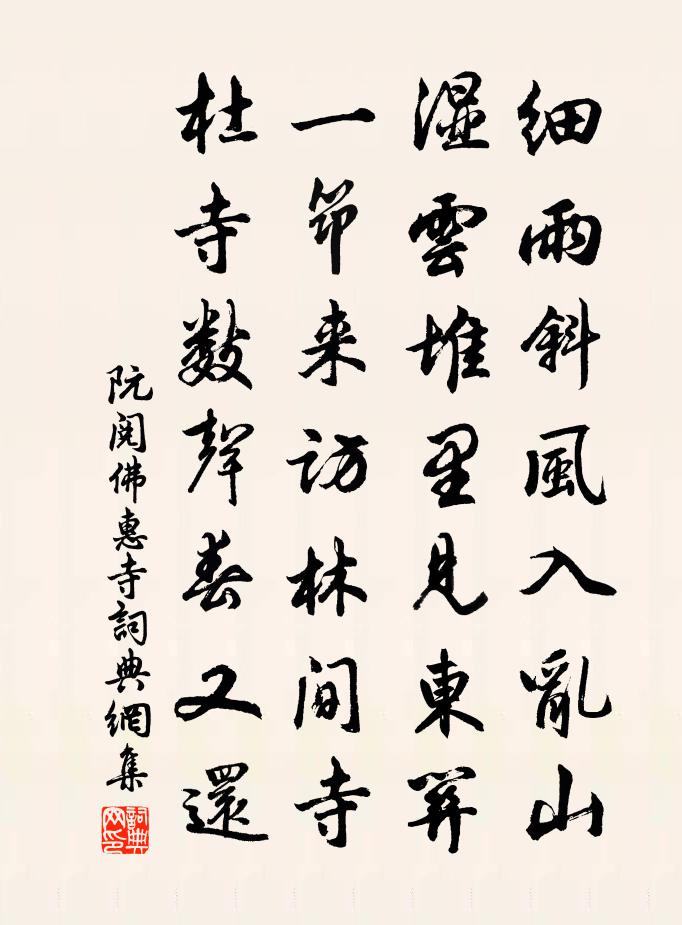 細雨斜風入亂山
湿雲堆里見東關
一筇来訪林間寺
杜寺數聲春又還
阮閱佛惠寺詞典網集
詞典网印